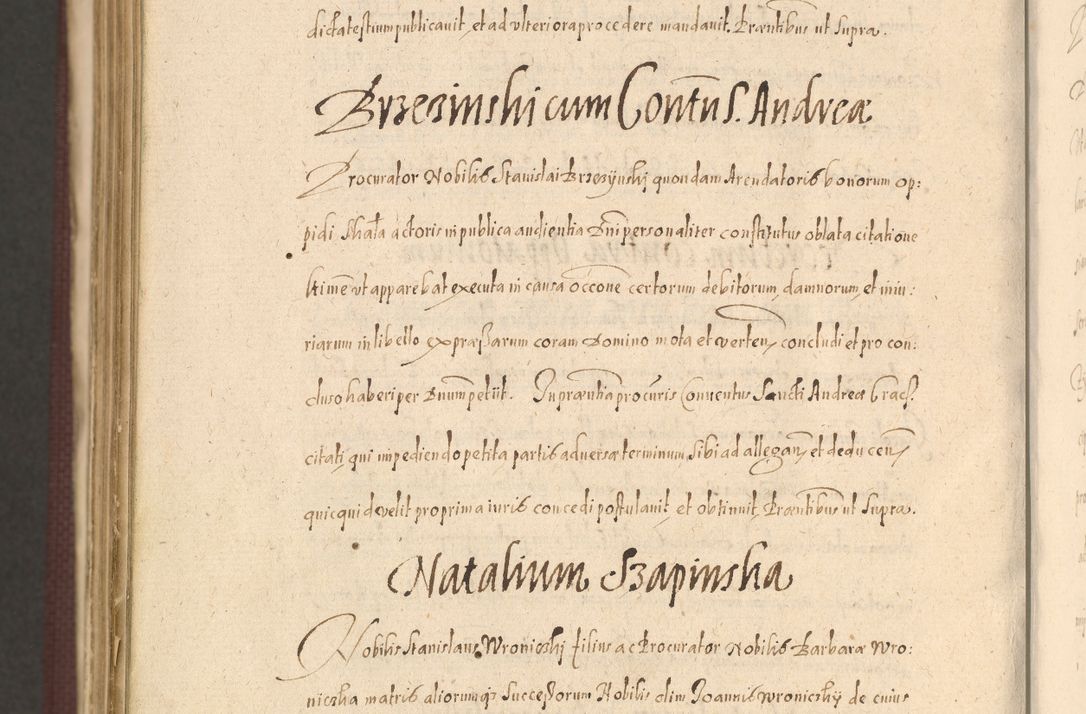 dictatestium publicavit, et ad ulteriora procedere mandavit. Præntibus ut supra.
Brzezinski cum Contūs. Andreæ
Procurator Nobilis Stanislai Brzezÿnskj quondam Arendatoris bonorum op:
pidi Skała actoris in publica audientia Dni personaliter constitutus oblata citatione
hime ut apparebat executa in causa occone certorum debitorum, damnorum, et iniu:
riarum in libello expræssarum coram Domino mota et verten, concludi et pro con:
cluso haberi per Dnum petiit. In præntia procuris Conventus Sancti Andreæ Crac.
citati, qui impediendo petita partis adversæ terminum sibi ad allegan, et deducen,
quicquid velit pro prima iuris concedi postulavit, et obtinuit, Præntibus ut supra.
Natalium Szapinska
Nobilis Stanislaus Wroniczkj filius ac Procurator Nobilis Barbaræ Wro:
niczka matris aliorumq3 successorum Nobilis olim Joannis Wroniczkÿ de cuius